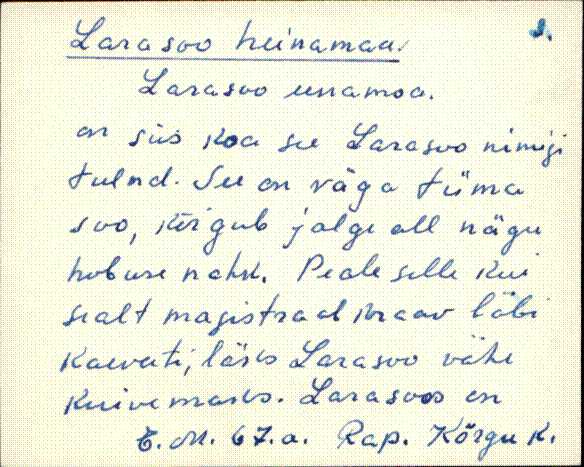 s.
Larasoo heinamaa.
Larasoo einamoa.
on siis koa see Larasoo nimigi
tulnd. See on väga tüma
soo, kõigub jalge all nägu
hobuse nahk. Peale selle kui
sealt magistraal kraav läbi
kaevati, läks Larasoo vähe
kuivemaks. Larasoos on
E. M. 67.a. Rap. Kõrgu k.